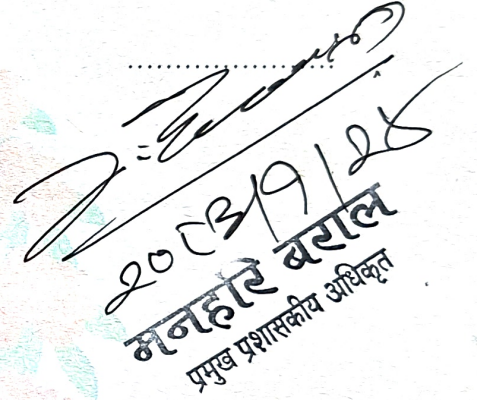 २०८३/१/२४
मनहरि बराल
प्रमुख प्रशासकीय अधिकृत